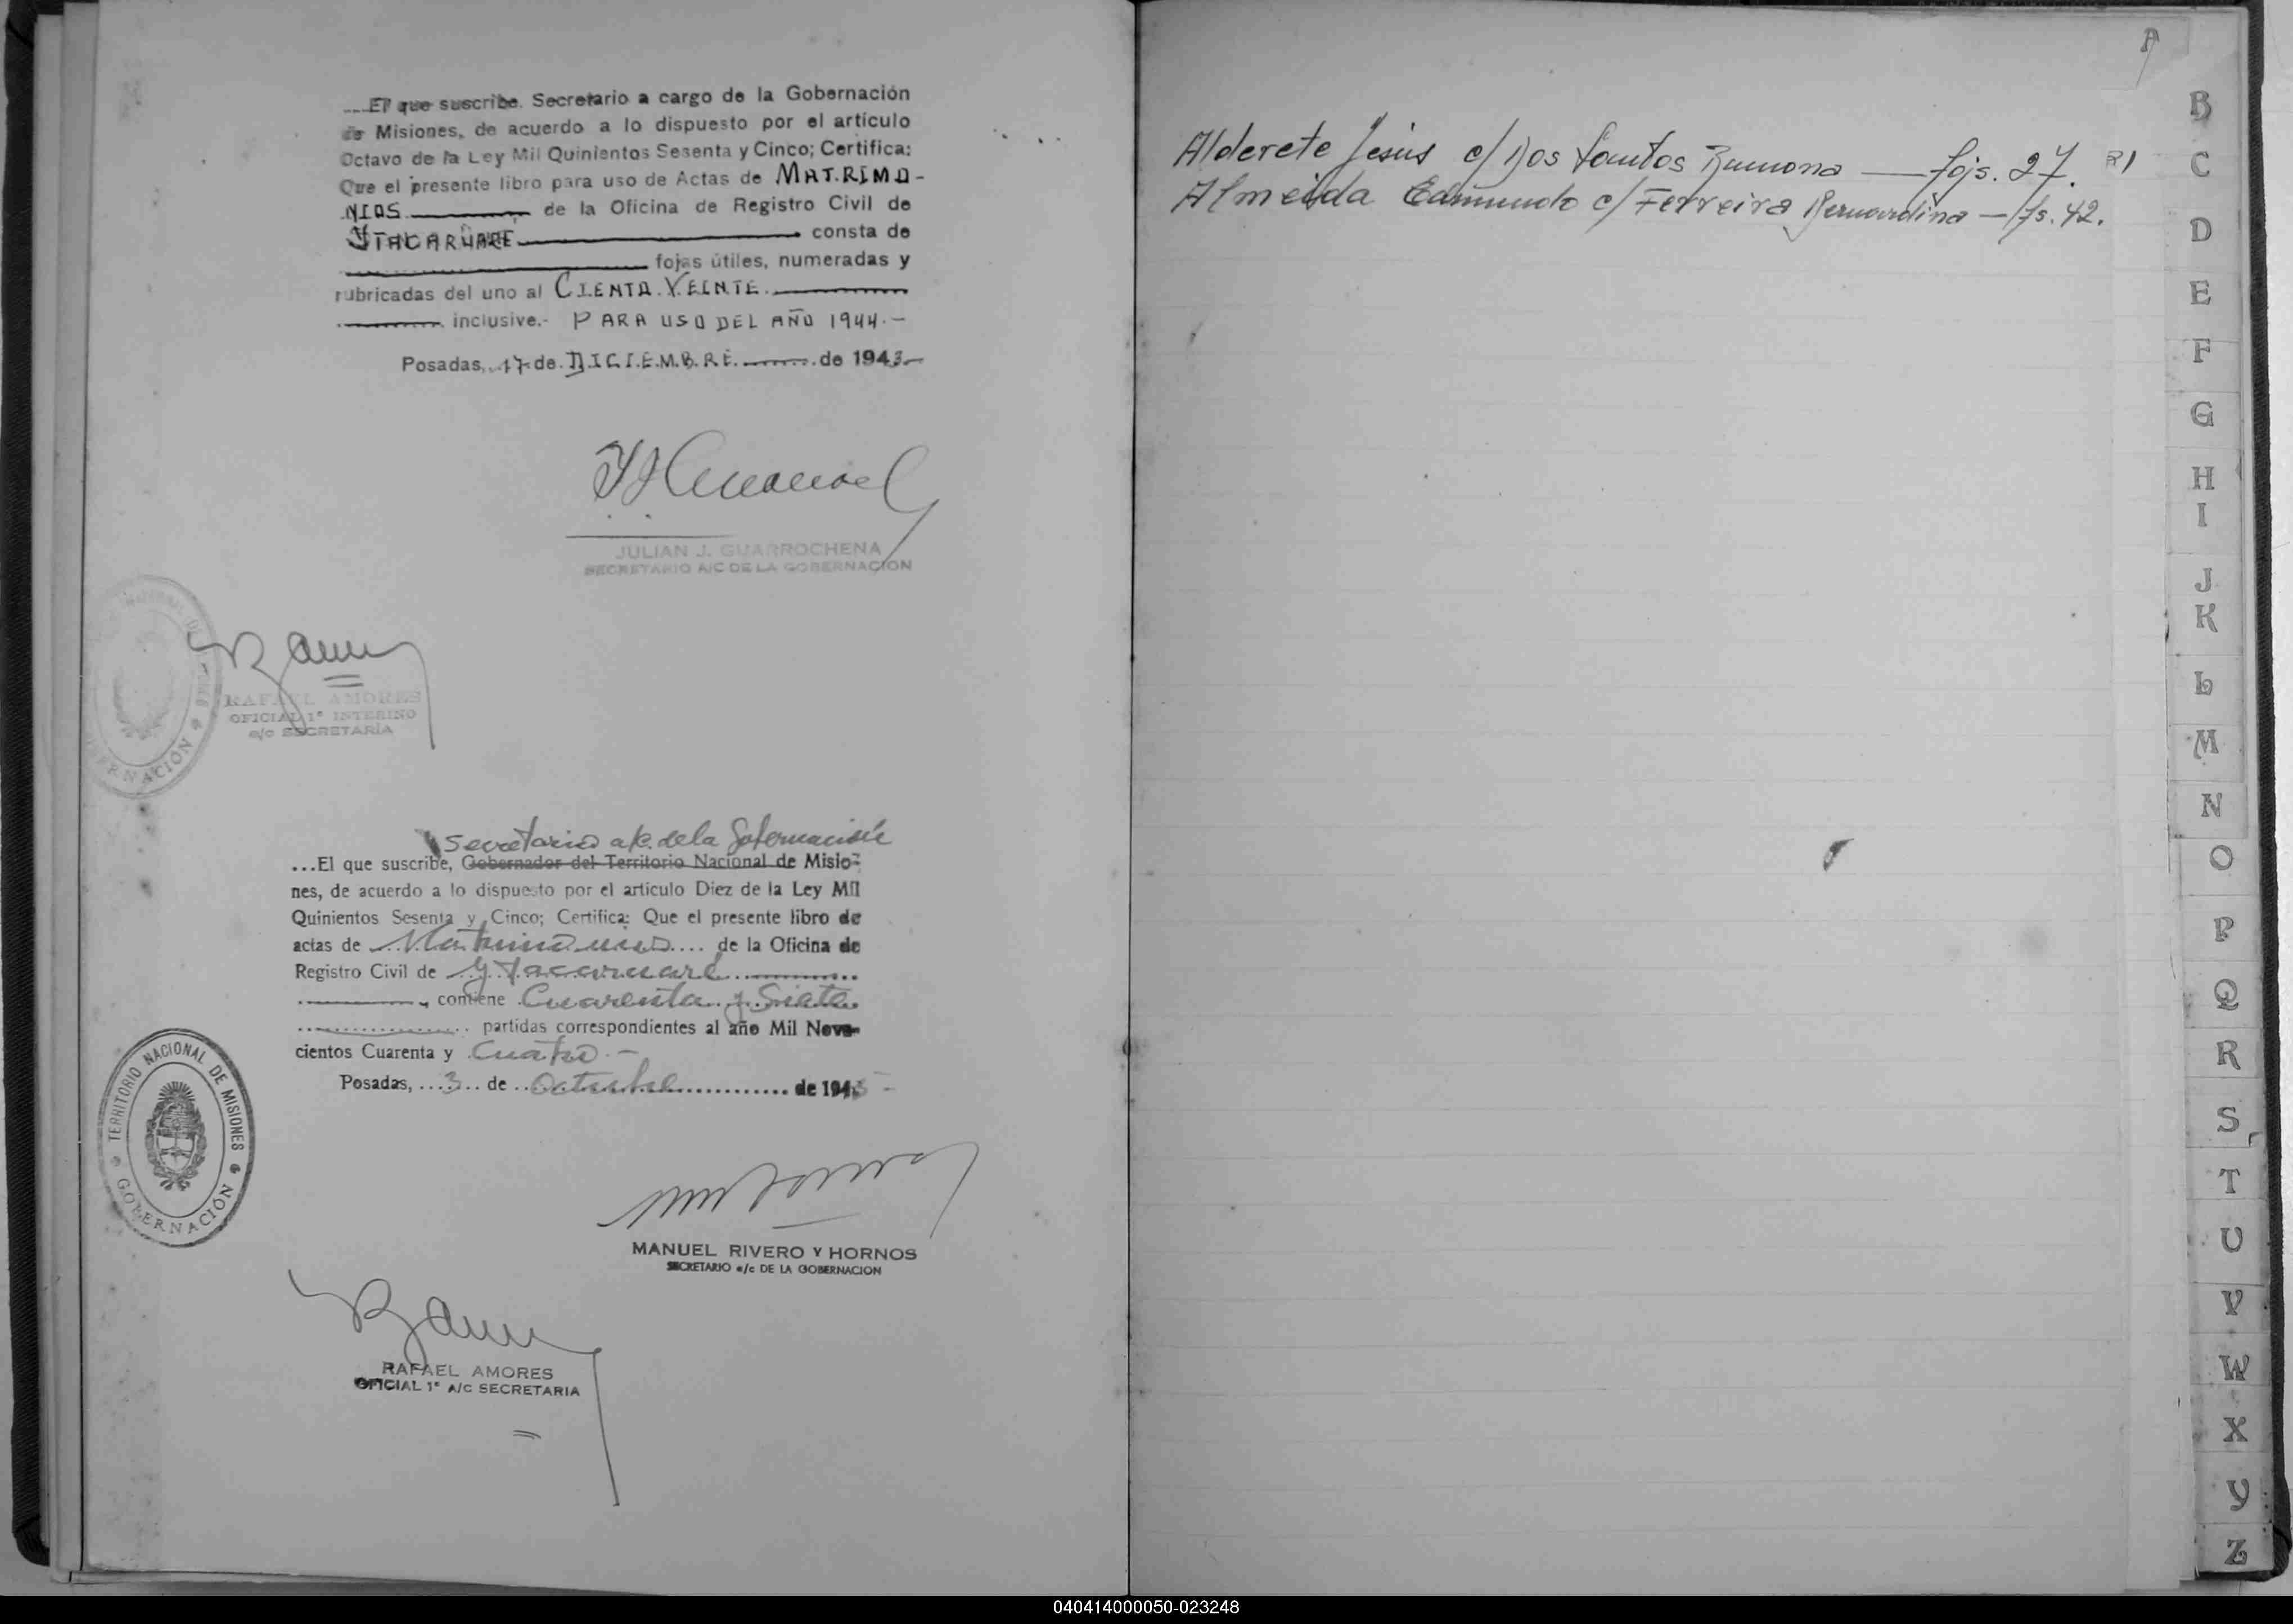 ....El que suscribe. Secretario a cargo de la Gobernación
de Misiones, de acuerdo a lo dispuesto por el artículo
Octavo de la Ley Mil Quinientos Sesenta y Cinco; Certifica:
Que el presente libro para uso de Actas de MATRIMO-
NIOS de la Oficina de Registro Civil de
YTACARUARE consta de
fojas útiles, numeradas y
rubricadas del uno al CIENTO VEINTE.
inclusive.- PARA USO DEL AÑO 1944.-
Posadas, 17 de DICIEMBRE de 1943.-
JULIAN J. GUARROCHENA
SECRETARIO A/C DE LA GOBERNACION
RAFAEL AMORES
OFICIAL 1º INTERINO
a/c SECRETARÍA
Secretario a/c. de la Gobernación
...El que suscribe, Gobernador del Territorio Nacional de Misio-
nes, de acuerdo a lo dispuesto por el artículo Diez de la Ley Mil
Quinientos Sesenta y Cinco; Certifica: Que el presente libro de
actas de Matrimonios.... de la Oficina de
Registro Civil de Ytacaruaré
contiene Cuarenta y Siete
partidas correspondientes al año Mil Nove-
cientos Cuarenta y Cuatro.-
Posadas, ...3... de ..Octubre.............. de 1945-
TERRITORIO NACIONAL DE MISIONES
GOBERNACIÓN
MANUEL RIVERO Y HORNOS
SECRETARIO a/c DE LA GOBERNACION
RAFAEL AMORES
OFICIAL 1º A/C SECRETARIA
A
Alderete Jesús c/ Dos Santos Ramona — fojs. 27. 31
Almeida Edmundo c/ Ferreira Bernardina — fs. 42.
B
C
D
E
F
G
H
I
J
K
L
M
N
O
P
Q
R
S
T
U
V
W
X
Y
Z
040414000050-023248